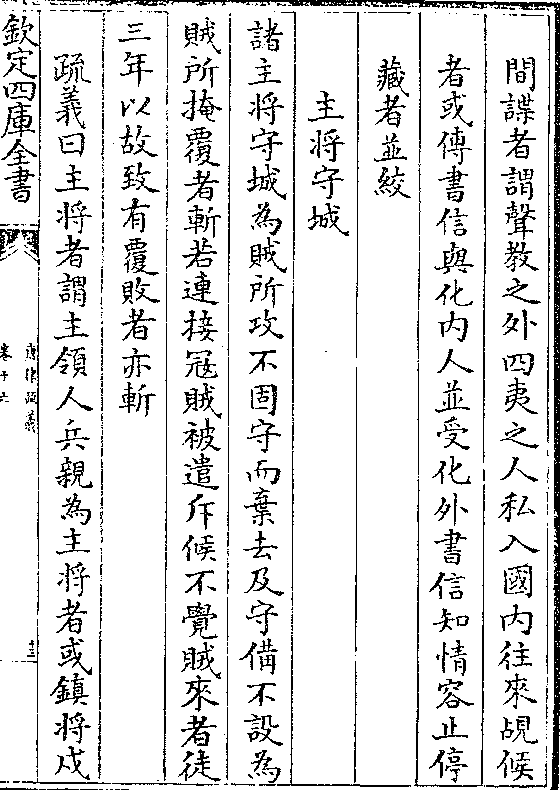 間諜者謂聲教之外四夷之人私入國內往來覘候
者或傳書信與化內人並受化外書信知情容止停
藏者並絞
主將守城
諸主將守城為賊所攻不固守而棄去及守備不設為
賊所掩覆者斬若連接冦賊被遣斥候不覺賊來者徒
三年以故致有覆敗者亦斬
疏義曰主將者謂主領人兵親為主將者或鎮將戍
欽定四庫全書
唐律疏義
卷十六
十三